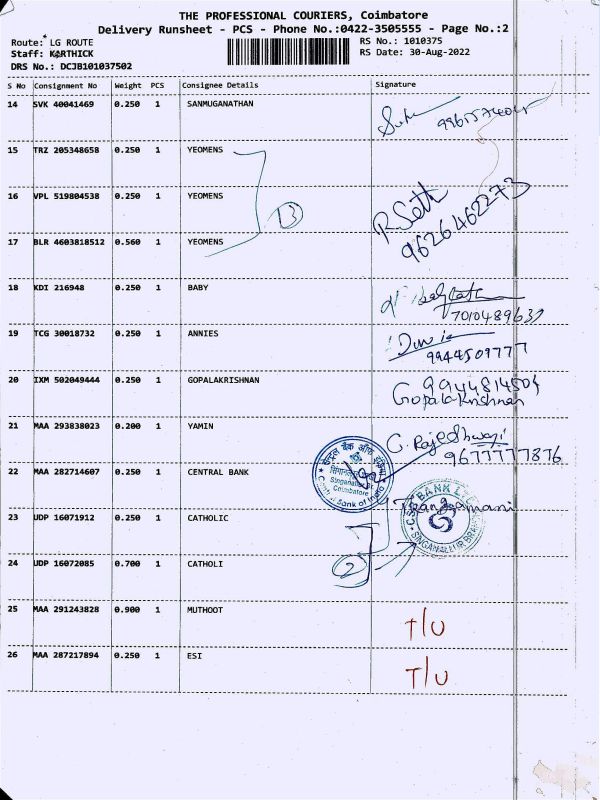 THE PROFESSIONAL COURIERS, Coimbatore
Delivery Runsheet - PCS - Phone No.:0422-3505555 - Page No.:2
Route: LG ROUTE
RS No.: 1010375
Staff: KARTHICK
RS Date: 30-Aug-2022
DRS No.: DCJB101037502
S No Consignment No Weight PCS Consignee Details Signature
14 SVK 40041469 0.250 1 SANMUGANATHAN
15 TRZ 205348658 0.250 1 YEOMENS
16 VPL 519804538 0.250 1 YEOMENS
R. Sett
9626462273
17 BLR 4603818512 0.560 1 YEOMENS
18 KDI 216948 0.250 1 BABY
19 TCG 30018732 0.250 1 ANNIES
20 IXM 502049444 0.250 1 GOPALAKRISHNAN
9944814504
Gopalakrishnan
21 MAA 293838023 0.200 1 YAMIN
G. Rajeshwari
9677777876
22 MAA 282714607 0.250 1 CENTRAL BANK
सेन्ट्रल बैंक ऑफ इंडिया
Singanallur Br.
Coimbatore
Central Bank of India
23 UDP 16071912 0.250 1 CATHOLIC
CSB BANK LTD
SINGANALLUR BRANCH
24 UDP 16072085 0.700 1 CATHOLI
2
25 MAA 291243828 0.900 1 MUTHOOT T/U
26 MAA 287217894 0.250 1 ESI T/U